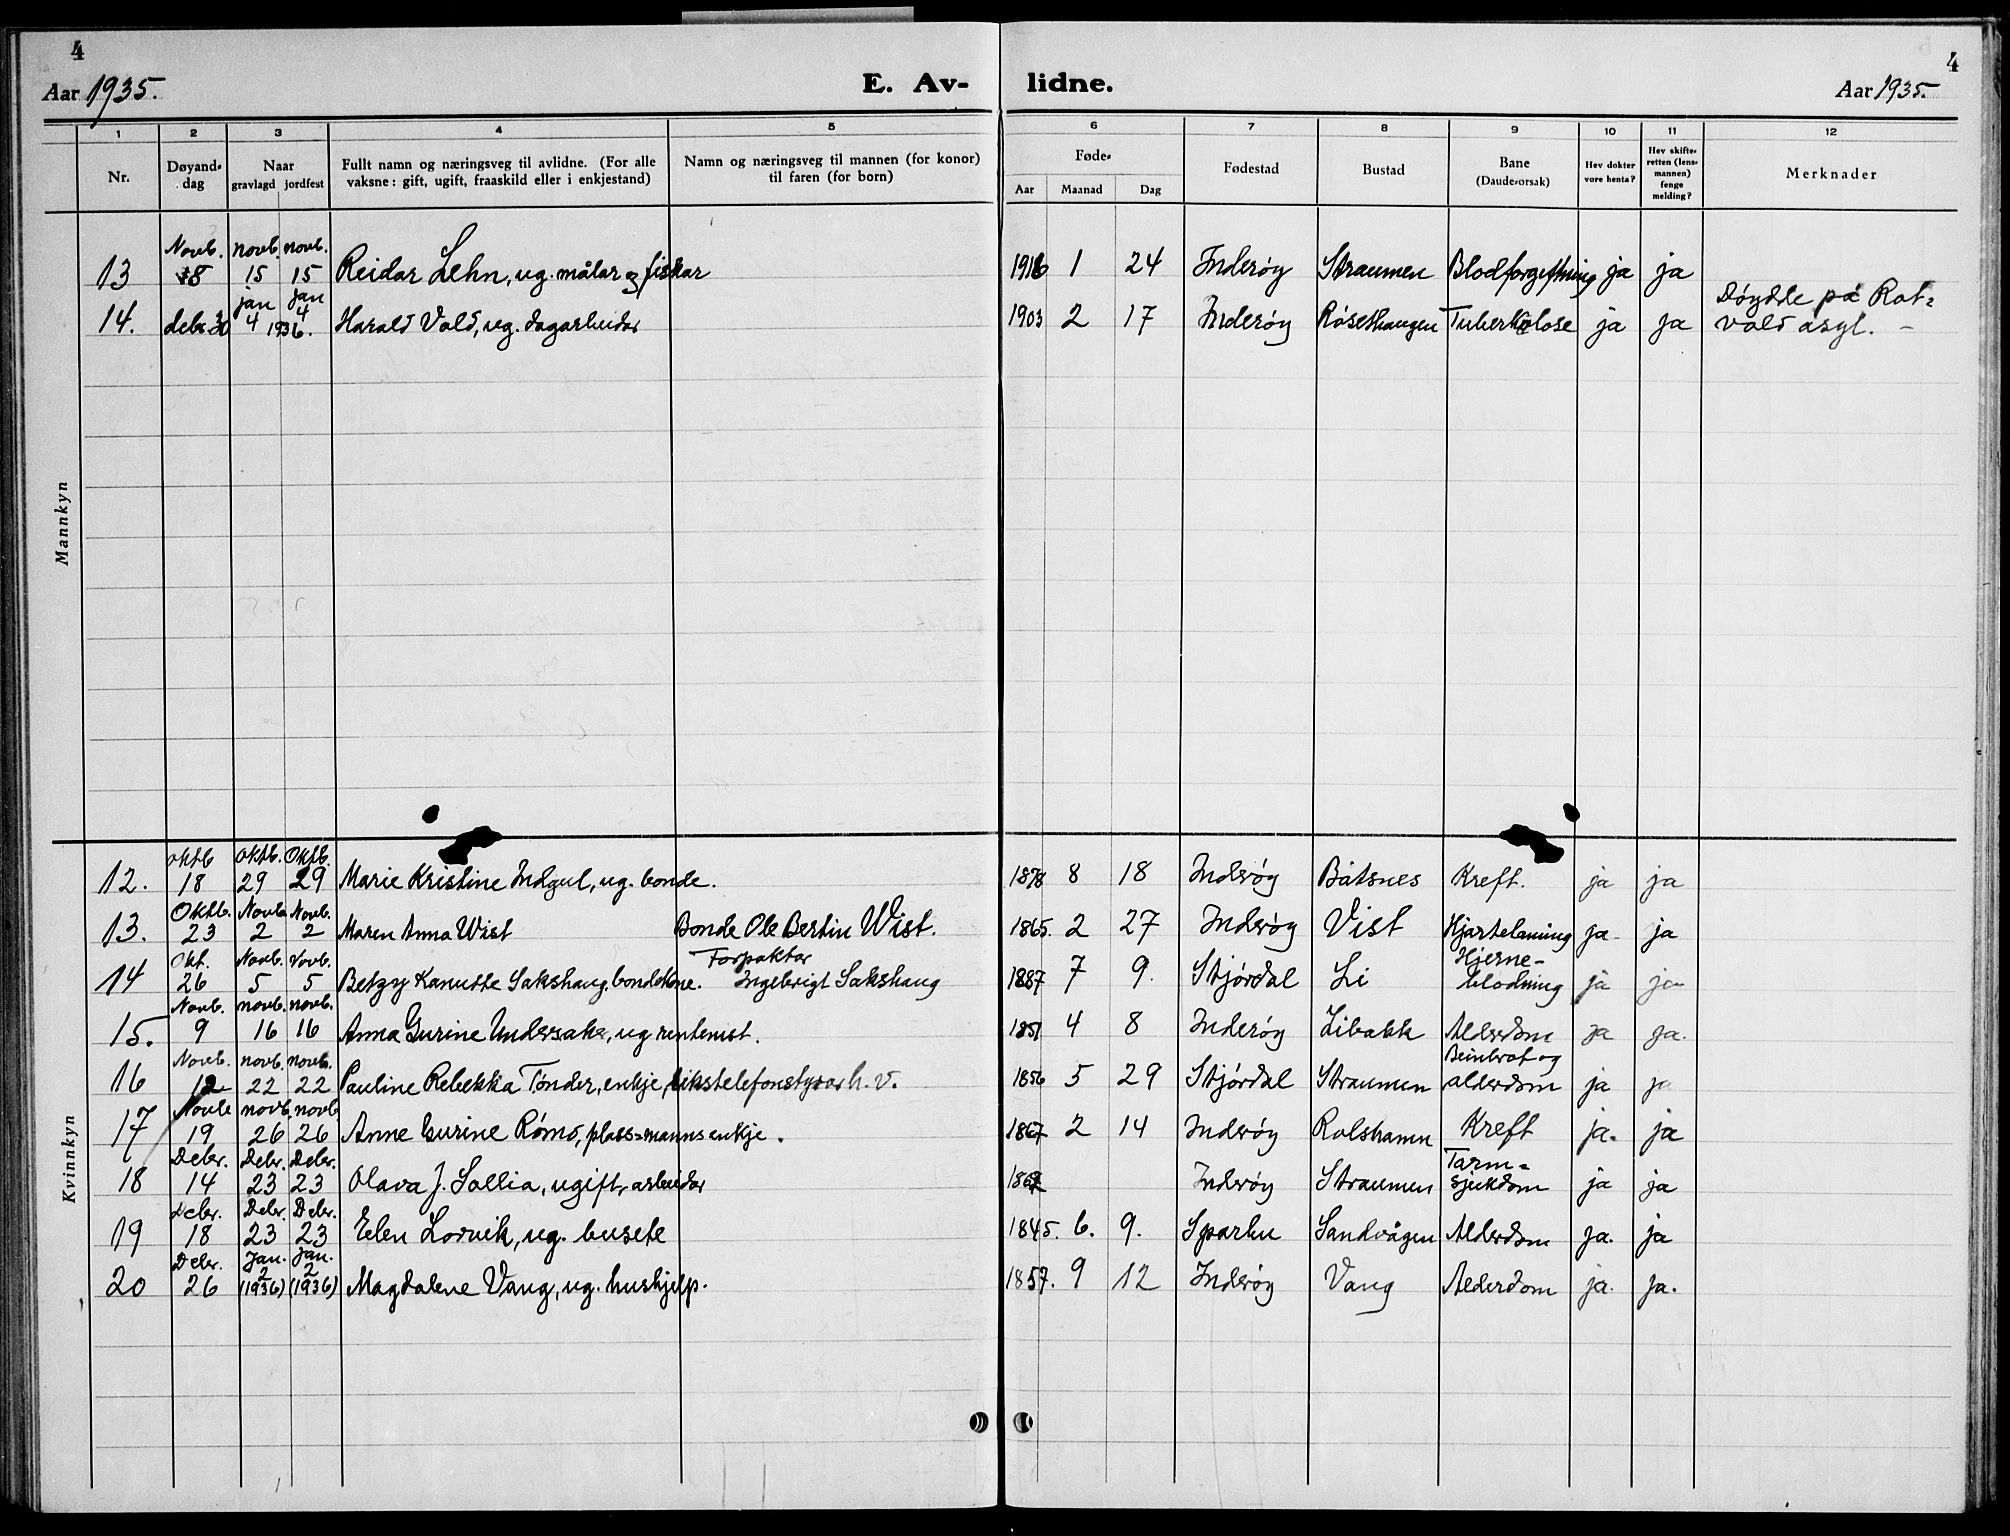 4
Aar 1935.
E. Av-
lidne.
4
Aar 1935.
1 2 3 4 5 6 7 8 9 10 11 12
Nr.
Døyand-dag
Naar
gravlagd jordfest
Fullt namn og næringsveg til avlidne. (For alle
vaksne: gift, ugift, fraaskild eller i enkjestand)
Namn og næringsveg til mannen (for konor)
til faren (for born)
Føde-
Aar Maanad Dag
Fødestad
Bustad
Bane
(Daude-orsak)
Hev dokter
vore henta?
Hev skifte-
retten (lens-
mannen)
fenge
melding?
Merknader
Mannkyn
Novb. novb. novb.
13 8 15 15 Reidar Lehn, ug. målar og fiskar 1916 1 24 Inderøy Straumen Blodforgiftning ja ja
jan jan Døydde på Rot=
14. debr. 30 4 4 1936. Harald Vold, ug. dagarbeidar 1903 2 17 Inderøy Røsethaugen Tuberkulose ja ja vold asyl. –
Kvinnkyn
oktb oktb. Oktb.
12. 18 29 29 Marie Kristine Indgul, ug. bonde. 1878 8 18 Inderøy Båtsnes Kreft. ja ja
Oktb. Novb. Novb.
13. 23 2 2 Maren Anna Wist Bonde Ole Bertin Wist. 1865. 2 27 Inderøy Vist Hjartelaming ja ja
Okt. Novb. Novb. Forpaktar Hjerne-
14 26 5 5 Betzy Kanutte Sakshaug, bondekone. Ingebrigt Sakshaug 1887 7 9. Stjørdal Li blødning ja ja
Novb. novb. novb.
15. 9 16 16 Anna Gurine Undersaker, ug rentenist. 1851 4 8 Inderøy Libakk Alderdom ja ja.
Novb. novb. novb. Beinbrot og
16 12 22 22 Pauline Rebekka Tønder, enkje, rikstelefonstyrar h. v. 1856 5 29 Stjørdal Straumen alderdom ja ja
Novb novb. novb
17 19 26 26 Anne Gurine Rømo, plass=manns enkje. 1867 2 14 Inderøy Rolshamn Kreft ja. ja
Debr. Debr. Debr. Tarm=
18 14 23 23 Olava J. Sollia, ugift, arbeidar Inderøy Straumen sjukdom ja ja
Debr. Debr. Debr.
19 18 23 23 Elen Lorvik, ug. busete 1845. 6. 9. Sparbu Sandvågen Alderdom ja. ja
Debr. Jan. Jan.
20 26 2 (1936) 2 (1936) Magdalene Vang, ug. hushjelp. 1857. 9 12 Inderøy Vang Alderdom ja. ja.